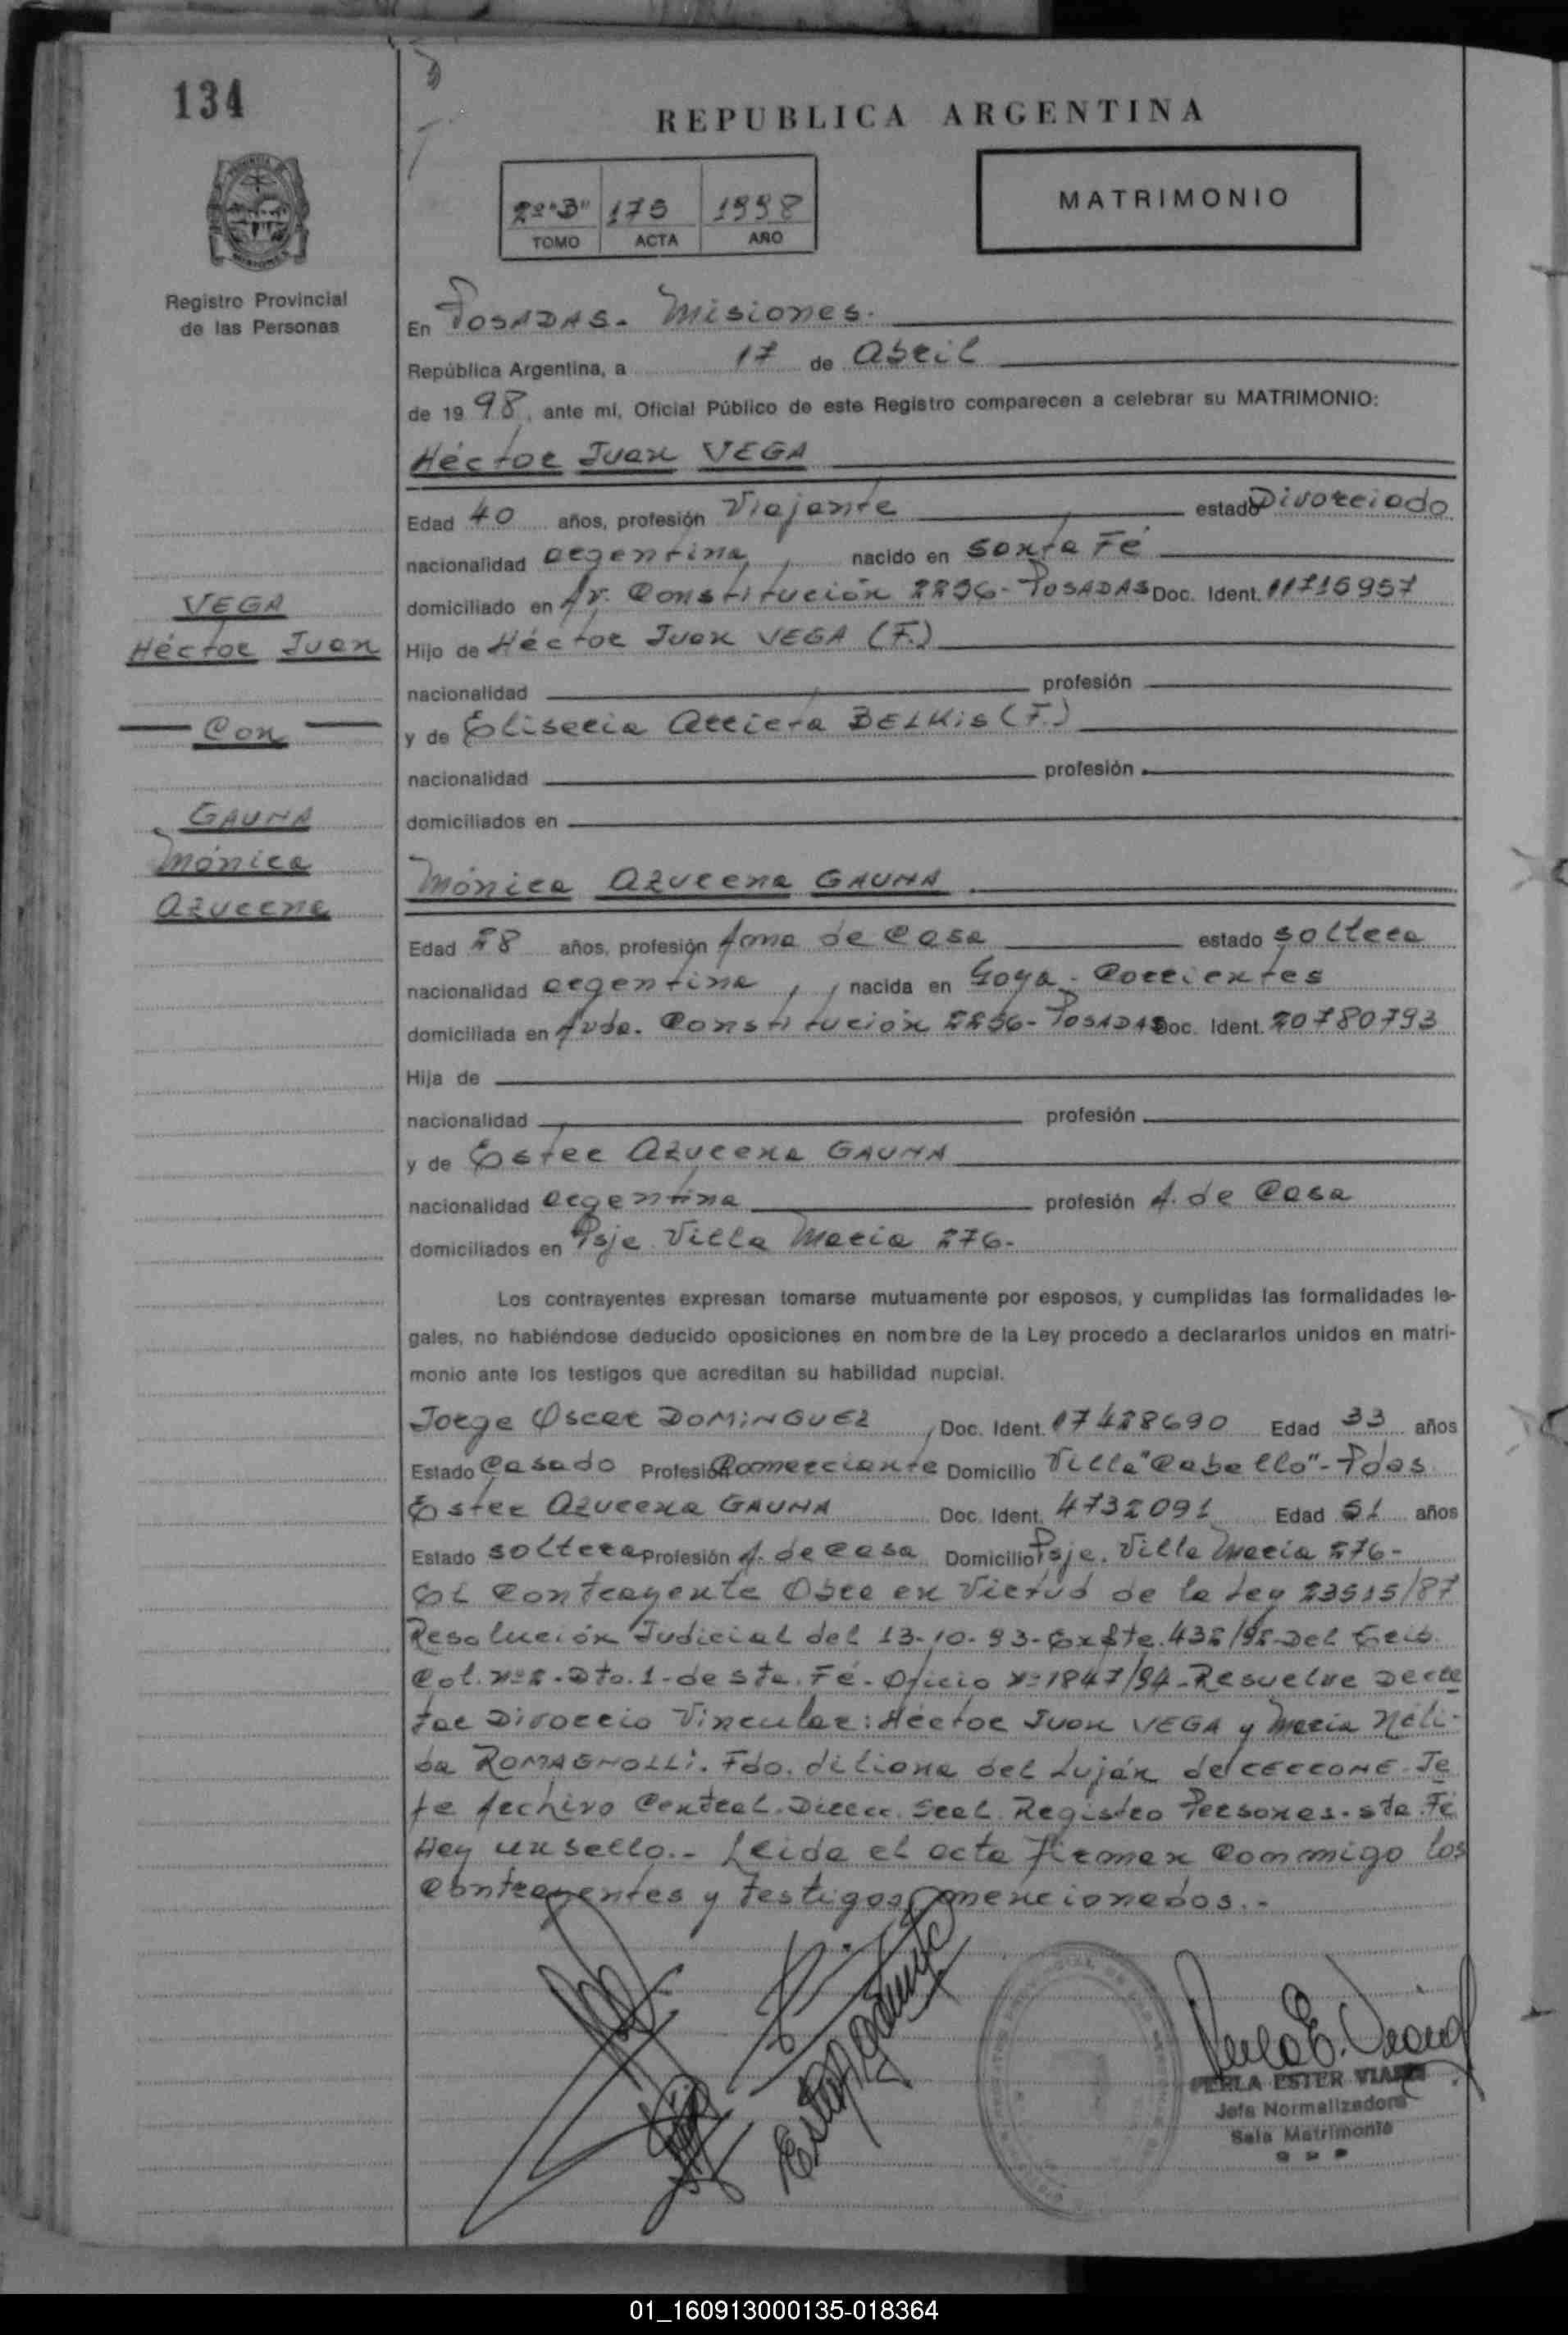 134
REPUBLICA ARGENTINA
2º "B" 175 1998
TOMO ACTA AÑO
MATRIMONIO
Registro Provincial
de las Personas
En POSADAS - Misiones.
República Argentina, a 17 de Abril
de 19 98, ante mí, Oficial Público de este Registro comparecen a celebrar su MATRIMONIO:
Héctor Juan VEGA
Edad 40 años, profesión Viajante estado Divorciado
nacionalidad argentina, nacido en Santa Fé
domiciliado en Av. Constitución 2256 - POSADAS Doc. Ident. 11715957
Hijo de Héctor Juan VEGA (F.)
nacionalidad profesión
y de Eliseria Arrieta BELKis (F.)
nacionalidad profesión
domiciliados en
VEGA
Héctor Juan
Con
GAUNA
Mónica
Azucena
Mónica Azucena GAUNA
Edad 28 años, profesión Ama de Casa estado soltera
nacionalidad argentina, nacida en Goya - Corrientes
domiciliada en Avda. Constitución 2256 - POSADAS Doc. Ident. 20780793
Hija de
nacionalidad profesión
y de Ester Azucena GAUNA
nacionalidad argentina profesión A. de Casa
domiciliados en Psje Villa Maria 276-
Los contrayentes expresan tomarse mutuamente por esposos, y cumplidas las formalidades le-
gales, no habiéndose deducido oposiciones en nombre de la Ley procedo a declararlos unidos en matri-
monio ante los testigos que acreditan su habilidad nupcial.
Jorge Oscar DOMiNGUEZ, Doc. Ident. 17428690 Edad 33 años
Estado Casado Profesión Comerciante Domicilio Villa "Cabello" - Pdas
Ester Azucena GAUNA Doc. Ident. 4732091 Edad 51 años
Estado soltera Profesión A. de Casa Domicilio Psje. Villa Maria 276-
El Contrayente Obra en Virtud de la Ley 23515/87
Resolución Judicial del 13-10-93-Expte. 432/92-Del Trib.
Col. Nº 2 - Dto. 1 - de Sta. Fé - Oficio Nº 1847/94 - Resuelve Decre
tar Divorcio Vincular: Héctor Juan VEGA y Maria Néli-
da ROMAGNOLLi. Fdo. Liliana del Luján de CECCONE - Je
fe Archivo Central. Direcc. Gral. Registro Personas - Sta. Fé
Hay un sello.- Leida el acta firman Conmigo los
Contrayentes y Testigos mencionados.-
PERLA ESTER
Jefa Normalizadora
Sala Matrimonio
01_160913000135-018364